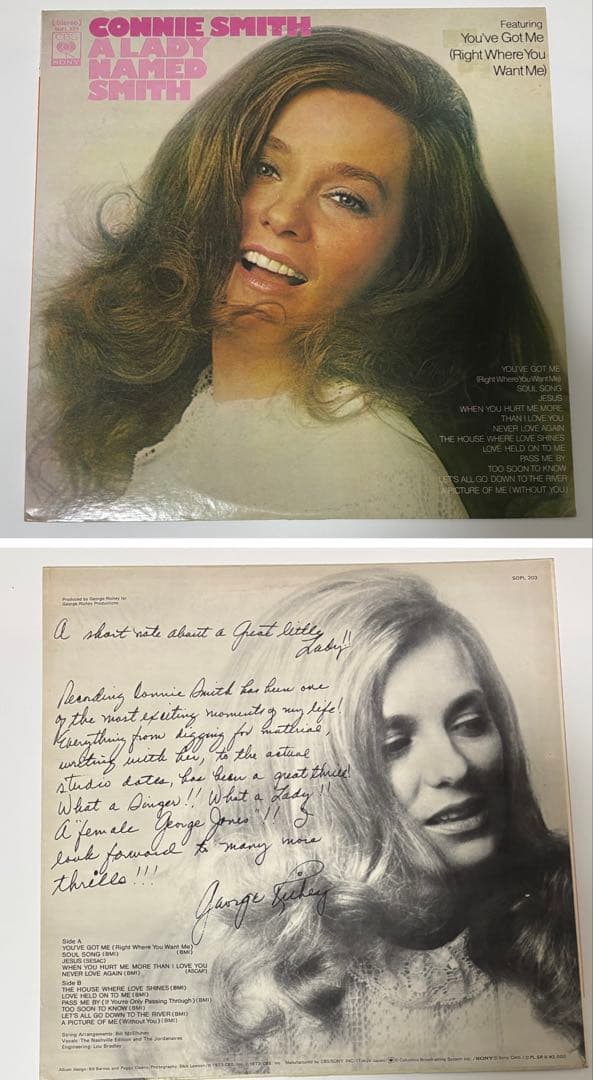 [Stereo]
CBS
SONY
CONNIE SMITH
A LADY
NAMED
SMITH
Featuring
You've Got Me
(Right Where You
Want Me)
YOU'VE GOT ME
(Right Where You Want Me)
SOUL SONG
JESUS
WHEN YOU HURT ME MORE
THAN I LOVE YOU
NEVER LOVE AGAIN
THE HOUSE WHERE LOVE SHINES
LOVE HELD ON TO ME
PASS ME BY
TOO SOON TO KNOW
LET'S ALL GO DOWN TO THE RIVER
A PICTURE OF ME (WITHOUT YOU)
SOPL 203
Produced by George Richey for
George Richey Productions
A short note about a Great little
Lady!!
Recording Connie Smith has been one
of the most exciting moments of my life!
Everything from digging for material,
writing with her, to the actual
studio dates, has been a great thrill!
What a Singer!! What a Lady!!
A "female George Jones"!! I
look forward to many more
thrills!!!
George Richey
Side A
YOU'VE GOT ME (Right Where You Want Me)
(BMI)
SOUL SONG (BMI)
JESUS (SESAC)
WHEN YOU HURT ME MORE THAN I LOVE YOU
(ASCAP)
NEVER LOVE AGAIN (BMI)
Side B
THE HOUSE WHERE LOVE SHINES (BMI)
LOVE HELD ON TO ME (BMI)
PASS ME BY (If You're Only Passing Through) (BMI)
TOO SOON TO KNOW (BMI)
LET'S ALL GO DOWN TO THE RIVER (BMI)
A PICTURE OF ME (Without You) (BMI)
String Arrangements: Bill McElhiney
Vocals: The Nashville Edition and The Jordanaires
Engineering: Lou Bradley
Album Design: Bill Barnes and Peggy Owens Photography: Slick Lawson
Manufactured by CBS/SONY INC. (Tokyo Japan)